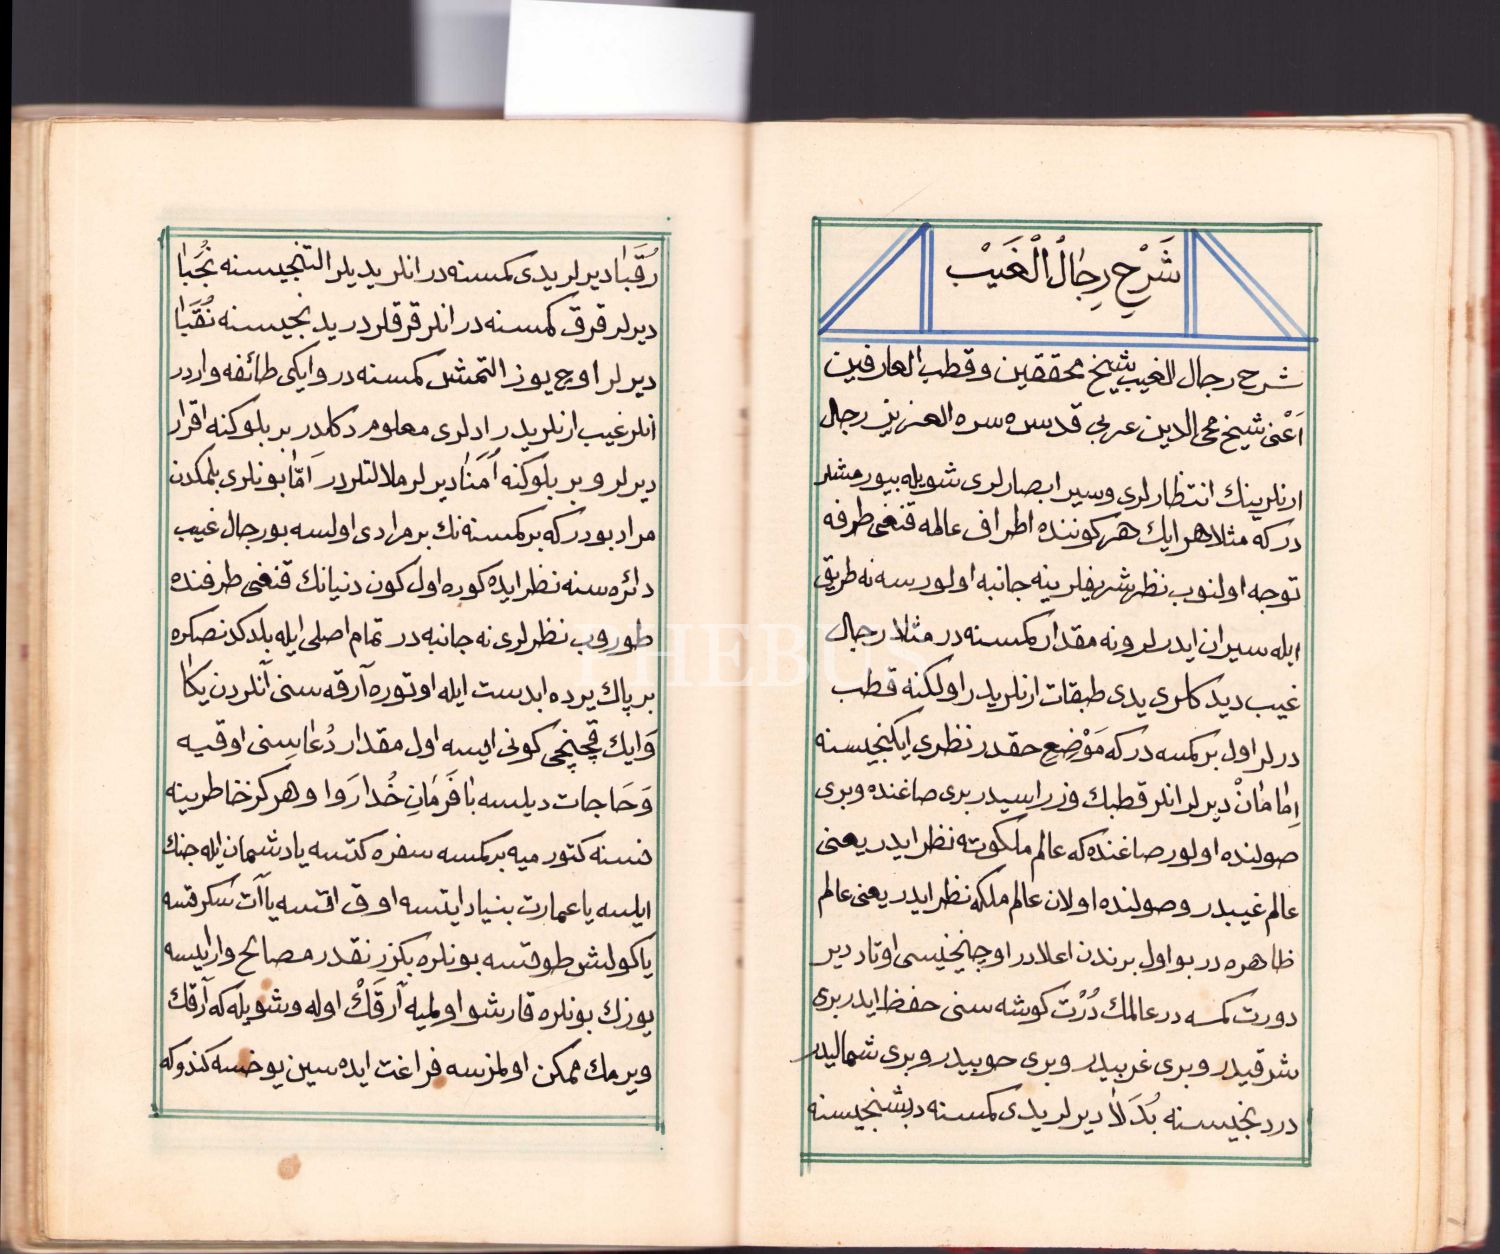 شَرْحِ رِجَالُ الْغَيْبْ
شرح رجال الغيب شيخ محققين وقطب العارفين
اَعْنى شيخ محى الدين عربى قدس سره العزيز رجال
ارنلرينك انتظارلرى وسير ابصارلرى شويله بيورمشلر
دركه مثلا هر ايك هر كوننده اطراف عالمه قنغى طرفه
توجه اولنوب نظر شريفلرينه جانبه اولورسه نه طريق
ايله سيران ايدرلر ونه مقدار كمسنه در مثلا رجال
غيب ديدكلرى يدى طبقات ارنلريدر اولكنه قطب
درلر اول بر كمسه دركه مَوْضِعِ حقدر نظرى ايكنجيسنه
اِمَامَانْ ديرلر انلر قطبك وزراسيدر برى صاغنده وبرى
صولنده اولور صاغنده كه عالم ملكوته نظر ايدر يعنى
عالم غيبدر وصولنده اولان عالم ملكه نظر ايدر يعنى عالم
ظاهره در بو اول برندن اعلادر اوچنجيسى اوتاد دير
دورت كمسه در عالمك دُرْت كوشه سنى حفظ ايدر برى
شرقيدر وبرى غربيدر وبرى جوبيدر وبرى شماليدر
دردنجيسنه بُدَلَا ديرلر يدى كمسنه در بشنجيسنه
رُقَبَا ديرلر يدى كمسنه در انلر يديلر التنجيسنه نُجَبَا
ديرلر قرق كمسنه در انلر قرقلردر يدنجيسنه نُقَبَا
ديرلر اوچ يوز التمش كمسنه در وايكى طائفه واردر
انلر غيب ارنلريدر ادلرى معلوم دكلدر بر بلوكنه اقرار
ديرلر وبر بلوكنه اُمَنَا ديرلر ملامتلردر اَمَّا بونلرى بلمكدن
مراد بودركه بر كمسنه نك بر مرادى اولسه بو رجال غيب
دائره سنه نظر ايده كوره اول كون دنيانك قنغى طرفنده
طوروب نظرلرى نه جانبه در تمام اصلى ايله بلدكدنصكره
بر پاك يرده ابدست ايله اوتوره آرقه سنى آنلردن يكا
وَايك قچنجى كونى ايسه اول مقدار دُعَاسِنى اوقيه
وَحَاجات ديلسه بَافَرْمَانِ خُدا رَوا وهركز خاطرينه
نسنه كتورميه بر كمسه سفره كتسه يا دشمان ايله جنك
ايلسه يا عمارت بنياد ايتسه اوق اتسه يا آت سكرتسه
يا كولش طوتسه بونلره بكزر نقدر مصالح وار ايسه
يوزك بونلره قارشو اولميه آرقَكْ اوله وشويله كه آرقك
ويرمك ممكن اولمزسه فراغت ايده سين يوخسه كندوكه
PHEBUS